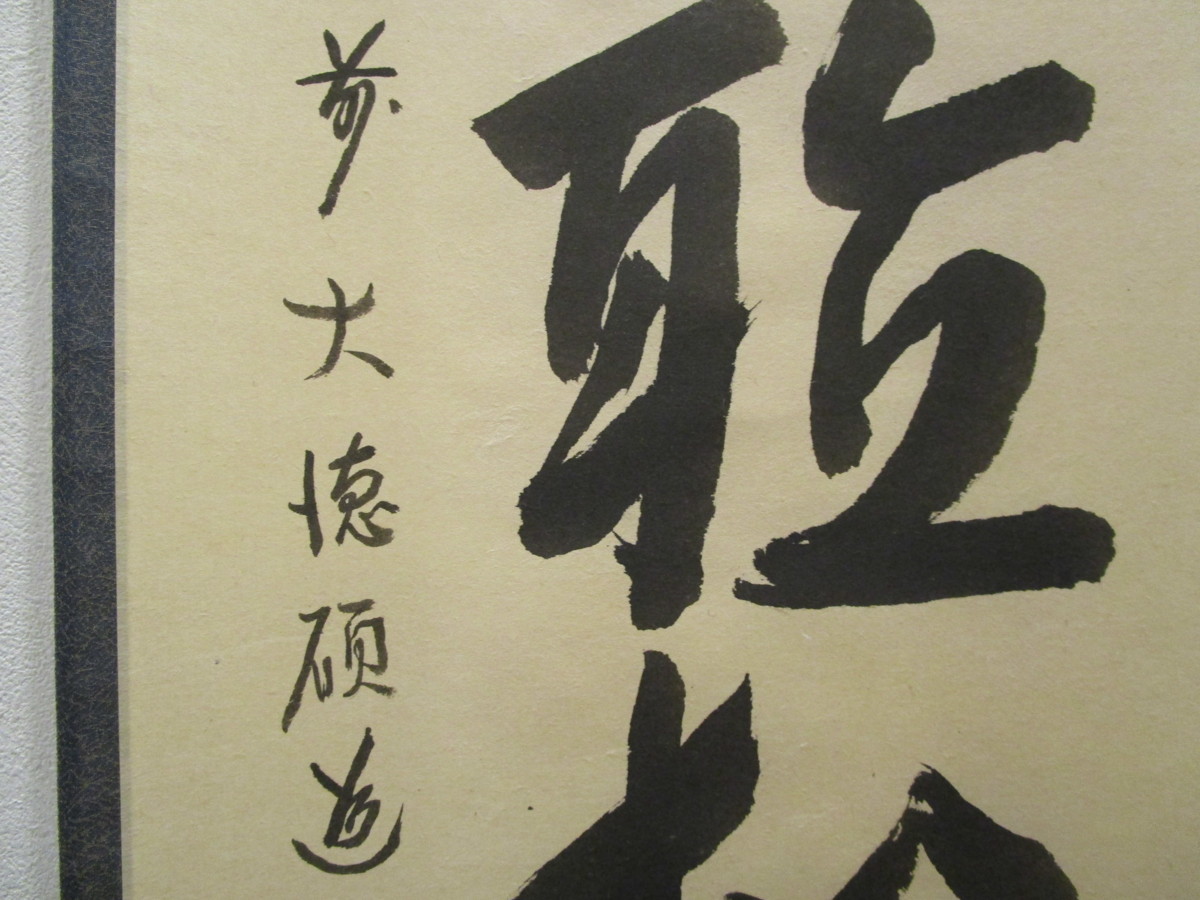 聴松
前大徳碩道